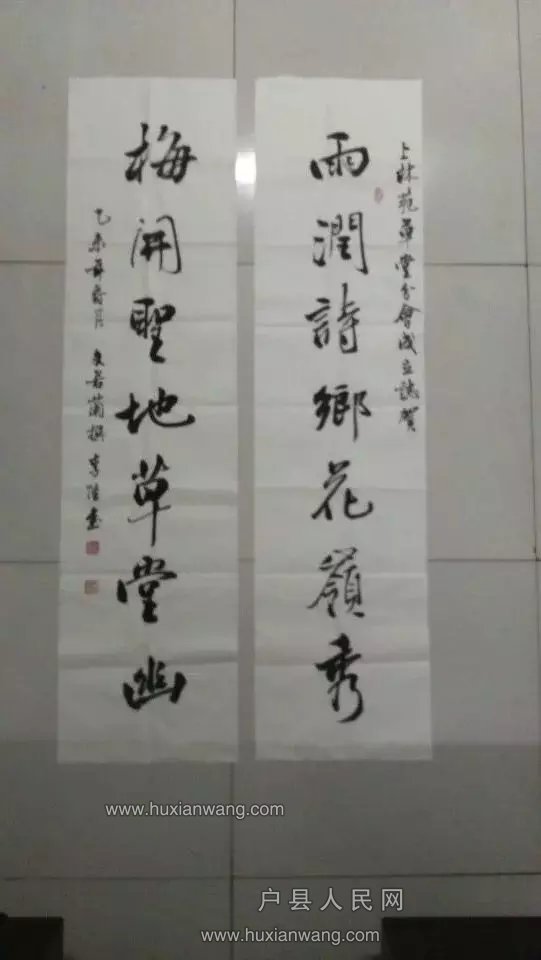 上林苑草堂分會成立誌賀
雨潤詩鄉花嶺秀
梅開聖地草堂幽
乙未年香月 文若蘭撰 李陸書
www.huxianwang.com
户县人民网
www.huxianwang.com